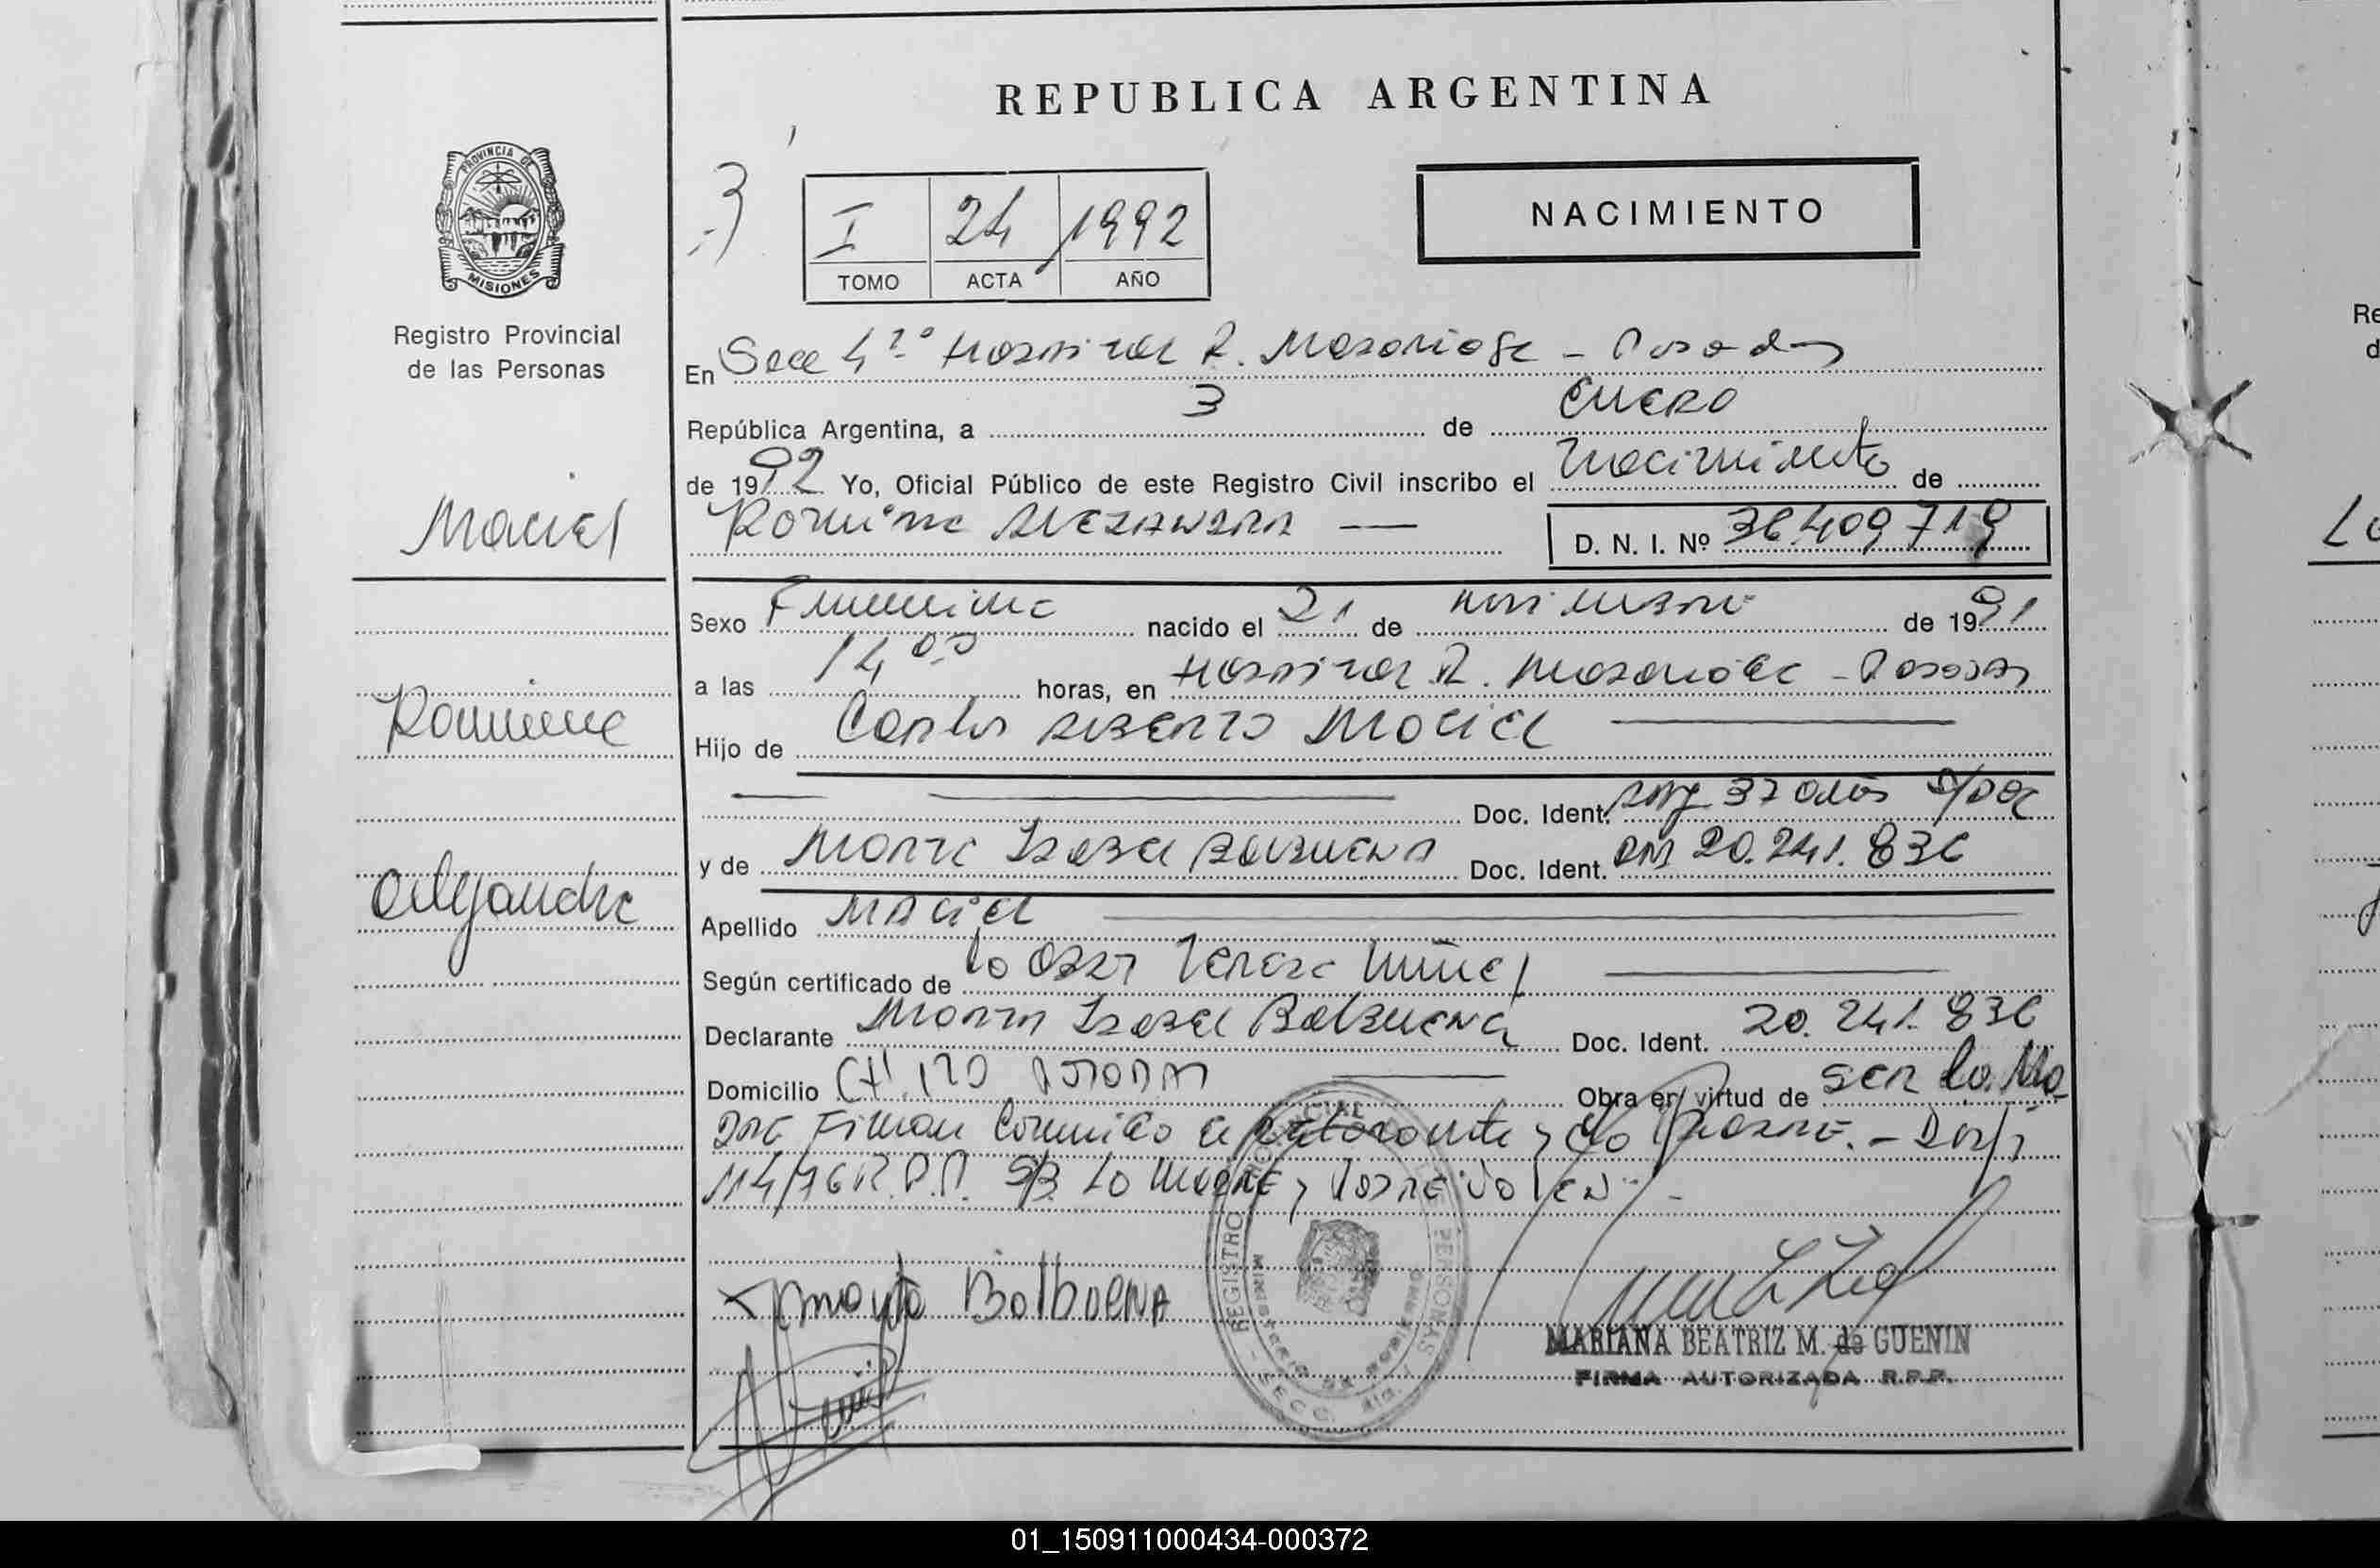 REPUBLICA ARGENTINA
PROVINCIA DE
MISIONES
Registro Provincial
de las Personas
I 24 1992
TOMO ACTA AÑO
NACIMIENTO
En Secc 4ta Hospital R. Madariaga - Posadas
República Argentina, a 3 de Enero
de 1992 Yo, Oficial Público de este Registro Civil inscribo el Nacimiento de
Romina ALEJANDRA
D. N. I. Nº 36.409.719
Maciel
Romina
Alejandra
Sexo Femenino nacido el 21 de de 1991
a las 14 horas, en Hospital R. Madariaga - Posadas
Hijo de Carlos ALBERTO MACIEL
Doc. Ident. Arg 37 años S/Doc
y de Marta Isabel BALBUENA Doc. Ident. DNI 20.241.836
Apellido MACIEL
Según certificado de la Obst Teresa
Declarante Marta Isabel BALBUENA Doc. Ident. 20.241.836
Domicilio Ch. 120 Obra en virtud de ser la Ma
dre Firman el y la
114/76 R.P.P. S/B. LO
Marta Balbuena
REGISTRO PROVINCIAL DE LAS PERSONAS
MINISTERIO DE GOBIERNO
MARIANA BEATRIZ M. de GUENIN
FIRMA AUTORIZADA R.P.P.
01_150911000434-000372